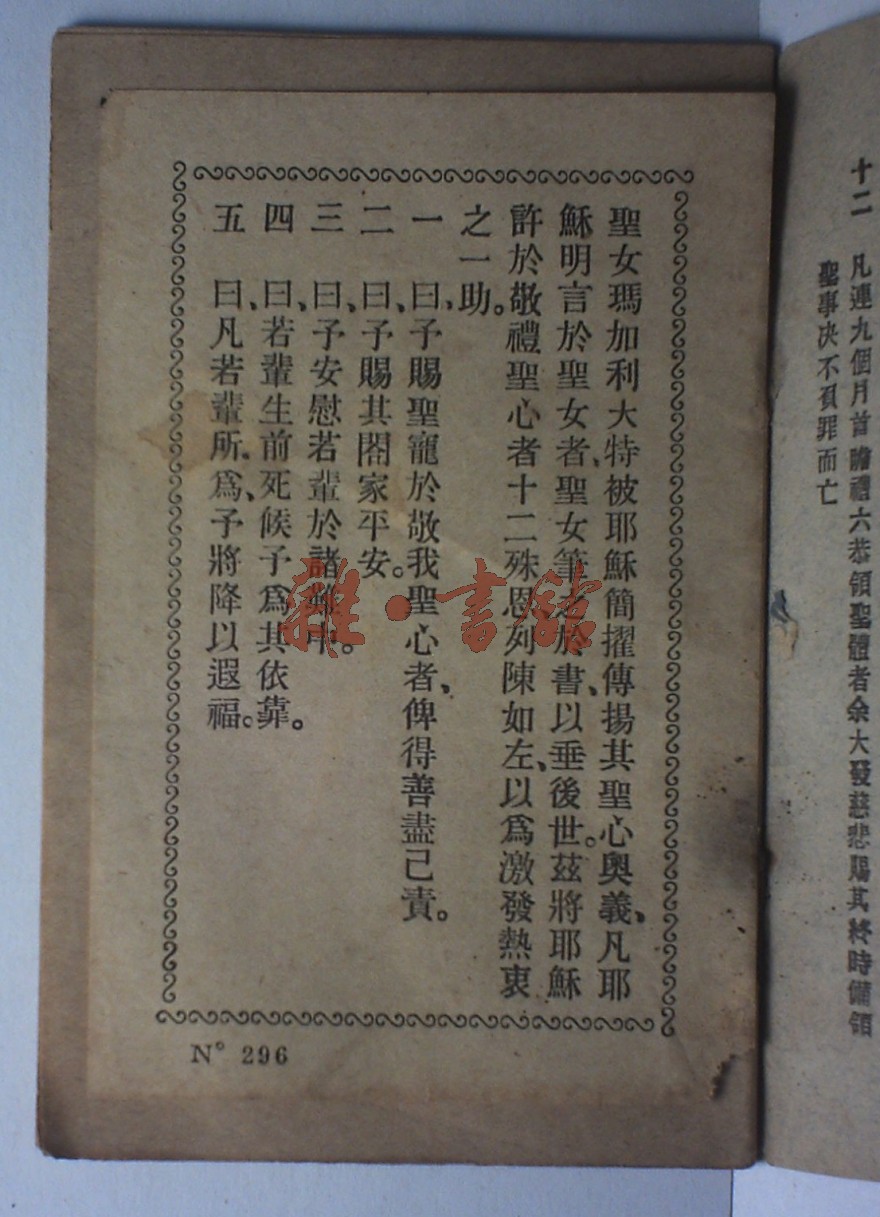 十二 凡連九個月首瞻禮六恭領聖體者余大發慈悲賜其終時備領
聖事决不負罪而亡
聖女瑪加利大特被耶穌簡擢、傳揚其聖心奧義、凡耶
穌明言於聖女者、聖女筆之於書、以垂後世。茲將耶穌
許於敬禮聖心者十二殊恩、列陳如左、以爲激發熱衷
之一助。
一 曰、予賜聖寵於敬我聖心者、俾得善盡己責。
二 曰、予賜其閤家平安。
三 曰、予安慰若輩於諸難中。
四 曰、若輩生前死候、予爲其依靠。
五 曰、凡若輩所爲、予將降以遐福。
N° 296
雜·書館